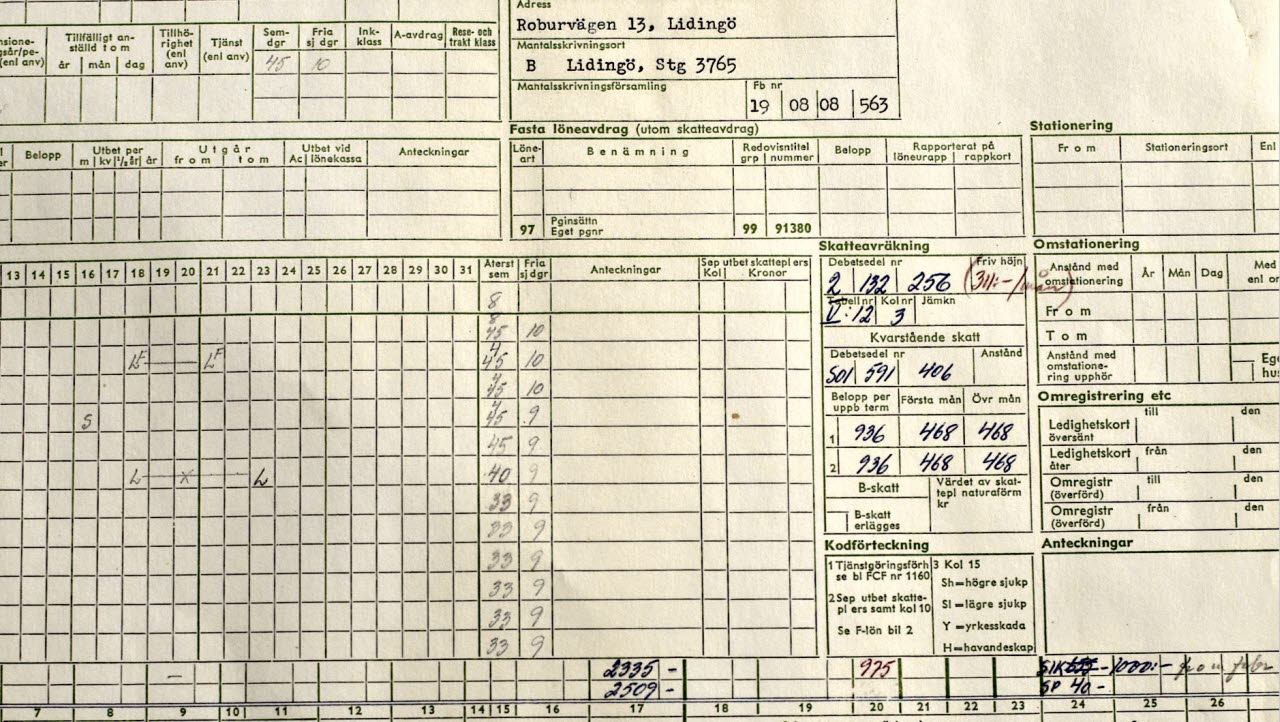 Adress
Roburvägen 13, Lidingö
Mantalsskrivningsort
B Lidingö, Stg 3765
Mantalsskrivningsförsamling
Fb nr
19 08 08 563
Tillfälligt an-
ställd t o m
år mån dag
Tillhö-
righet
(enl
anv)
Tjänst
(enl anv)
Sem-
dgr
45
Fria
sj dgr
10
Ink-
klass
A-avdrag
Rese- och
trakt klass
Belopp
Utbet per
m kv ½ år år
Utgår
from tom
Utbet vid
Ac lönekassa
Anteckningar
Fasta löneavdrag (utom skatteavdrag)
Löne-
art
Benämning
Redovisntitel
grp nummer
Belopp
Rapporterat på
löneurapp rappkort
97 Pginsättn
Eget pgnr
99 91380
Stationering
From Stationeringsort Enl
13 14 15 16 17 18 19 20 21 22 23 24 25 26 27 28 29 30 31
Återst
sem
Fria
sj dgr
Anteckningar
Sep utbet skattepl ers
Kol Kronor
8
8
45 10
LF LF
4
45 10
4
45 10
S
4
45 9
45 9
L x L
40 9
33 9
33 9
33 9
33 9
33 9
33 9
Skatteavräkning
Debetsedel nr
Friv höjn
2 132 256 (311:-/mån)
Tabell nr Kol nr Jämkn
V:12 3
Kvarstående skatt
Debetsedel nr Anstånd
501 591 406
Belopp per
uppb term
Första mån Övr mån
1 936 468 468
2 936 468 468
B-skatt
Värdet av skat-
tepl naturaförm
kr
B-skatt
erlägges
Kodförteckning
1 Tjänstgöringsförh
se bl FCF nr 1160
2 Sep utbet skatte-
pl ers samt kol 10
Se F-lön bil 2
3 Kol 15
Sh=högre sjukp
Sl=lägre sjukp
Y=yrkesskada
H=havandeskap
Omstationering
Anstånd med
omstationering
År Mån Dag
Med
From
Tom
Anstånd med
omstatione-
ring upphör
Omregistrering etc
till den
Ledighetskort
översänt
från den
Ledighetskort
åter
till den
Omregistr
(överförd)
från den
Omregistr
(överförd)
Anteckningar
2335 -
975
1000:- from
2509 -
SP 40 -
7 8 9 10 11 12 13 14 15 16 17 18 19 20 21 22 23 24 25 26